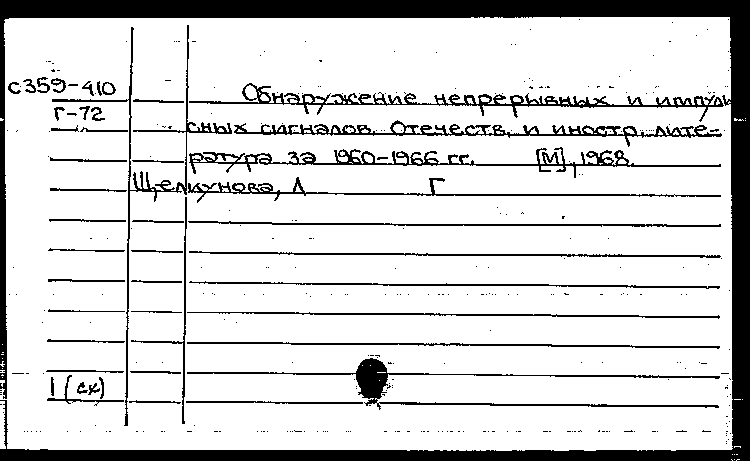 с359-410
Обнаружение непрерывных и импуль
г-72
сных сигналов. Отечеств. и иностр. лите-
ратура за 1960-1966 гг. [М], 1968.
Щелкунова, Л Г
1 (ск)